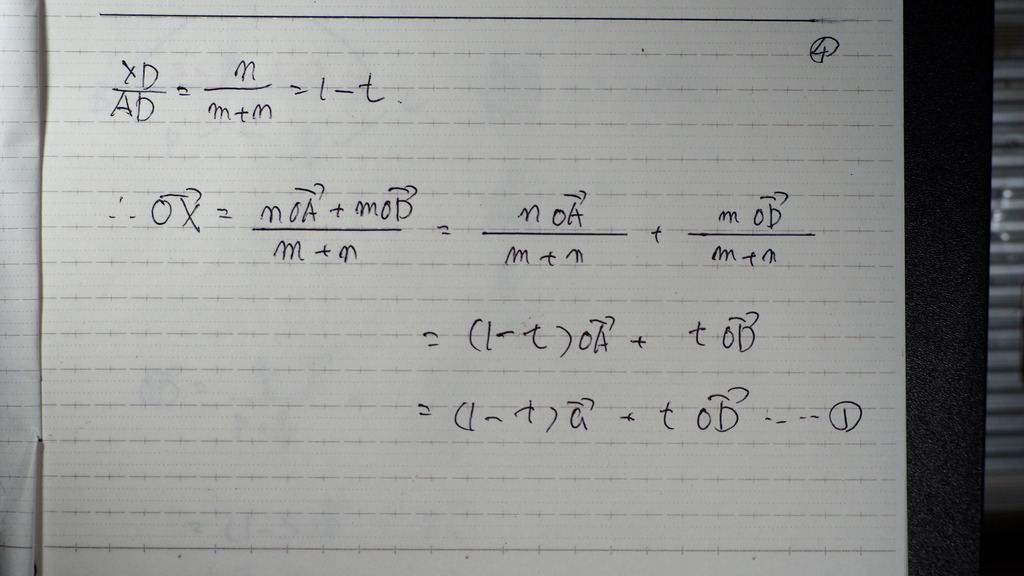 ④
XD/AD = n/(m+n) = 1-t.
∴ \vec{OX} = (n\vec{OA} + m\vec{OD})/(m+n) = n\vec{OA}/(m+n) + m\vec{OD}/(m+n)
= (1-t)\vec{OA} + t\vec{OD}
= (1-t)\vec{a} + t\vec{OD} ----- ①